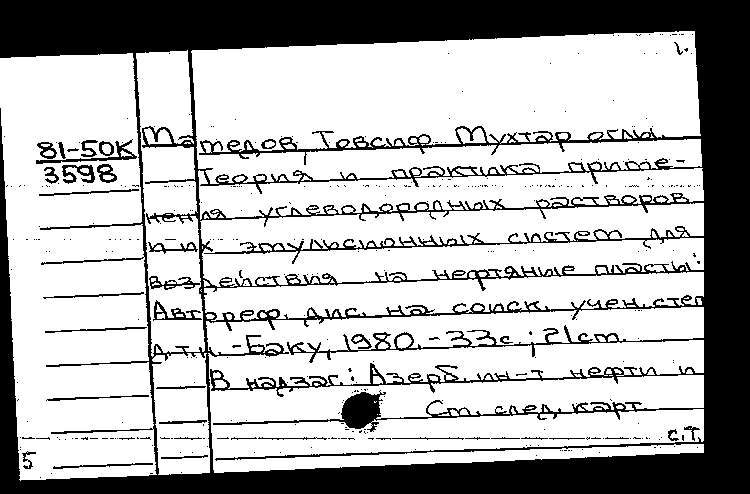 1.
81-50К
3598
Мамедов, Товсиф Мухтар оглы.
Теория и практика приме-
нения углеводородных растворов
и их эмульсионных систем для
воздействия на нефтяные пласты:
Автореф. дис. на соиск. учен. степ
д.т.н. - Баку, 1980. - 33с.; 21см.
В надзаг.: Азерб. ин-т нефти и
См. след. карт.
с.т.
5